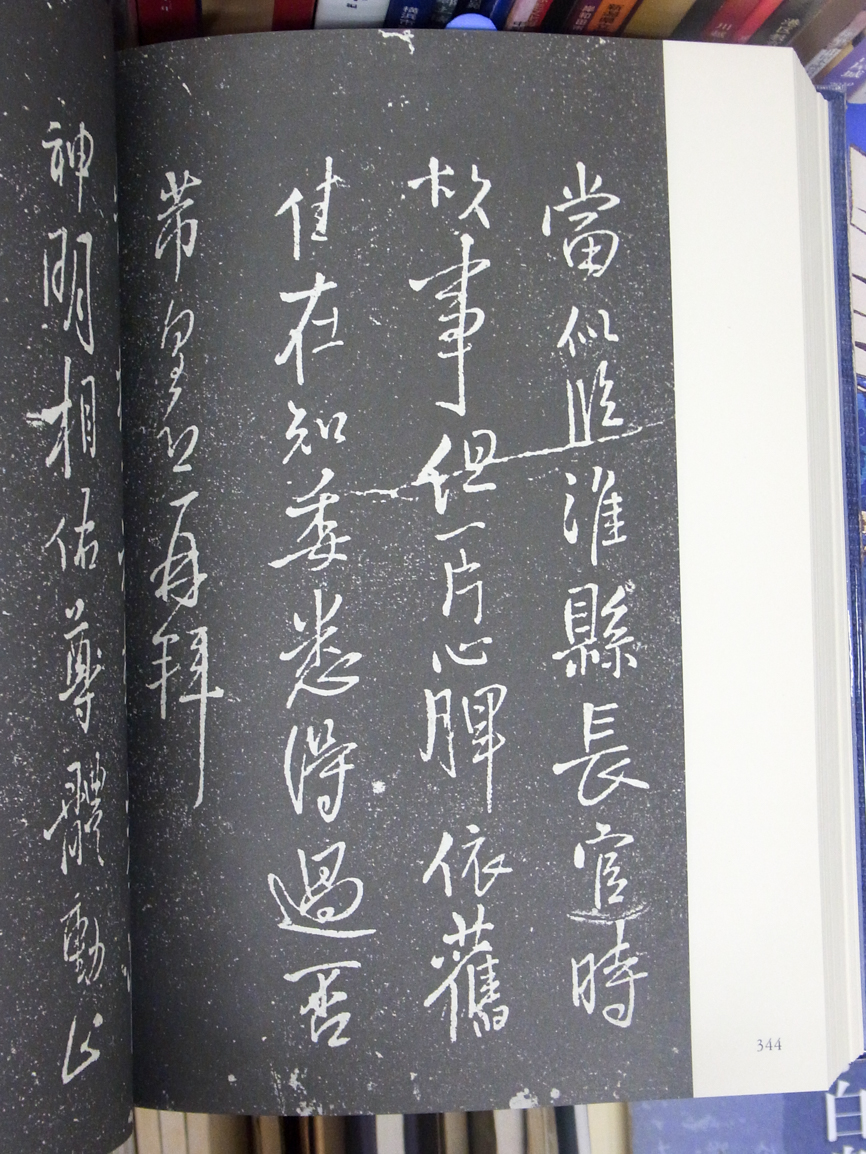 當似臨淮縣長官時
故事但一片心脾依舊
佳在知委悉得過否
芾皇恐再拜
神明相佑尊體動止
344